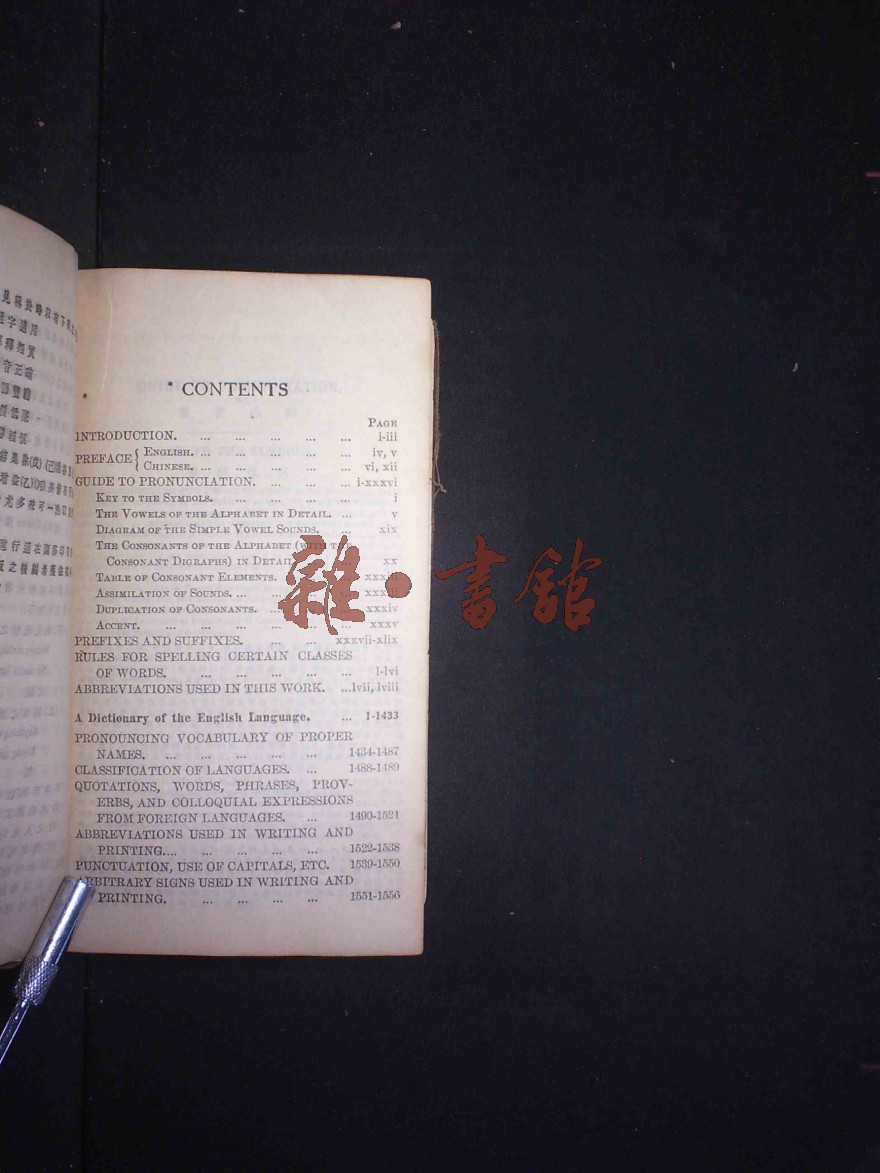 CONTENTS
PAGE
INTRODUCTION. ... ... ... ... ... i-iii
PREFACE { ENGLISH. ... ... ... ... ... iv, v
CHINESE. ... ... ... ... ... vi, xii
GUIDE TO PRONUNCIATION. ... ... ... i-xxxvi
KEY TO THE SYMBOLS. ... ... ... ... i
THE VOWELS OF THE ALPHABET IN DETAIL. ... v
DIAGRAM OF THE SIMPLE VOWEL SOUNDS. ... xix
THE CONSONANTS OF THE ALPHABET (WITH THE
CONSONANT DIGRAPHS) IN DETAIL xx
TABLE OF CONSONANT ELEMENTS.
ASSIMILATION OF SOUNDS. ... ...
DUPLICATION OF CONSONANTS. ... xxxiv
ACCENT. ... ... ... ... ... ... xxxv
PREFIXES AND SUFFIXES. ... ... xxxvii-xlix
RULES FOR SPELLING CERTAIN CLASSES
OF WORDS. ... ... ... ... ... l-lvi
ABBREVIATIONS USED IN THIS WORK. ...lvii, lviii
A Dictionary of the English Language. ... 1-1433
PRONOUNCING VOCABULARY OF PROPER
NAMES. ... ... ... ... ... ... 1434-1487
CLASSIFICATION OF LANGUAGES. ... 1488-1489
QUOTATIONS, WORDS, PHRASES, PROV-
ERBS, AND COLLOQUIAL EXPRESSIONS
FROM FOREIGN LANGUAGES. ... 1490-1521
ABBREVIATIONS USED IN WRITING AND
PRINTING.... ... ... ... ... 1522-1538
PUNCTUATION, USE OF CAPITALS, ETC. 1539-1550
ARBITRARY SIGNS USED IN WRITING AND
PRINTING. ... ... ... ... 1551-1556
雜·書館